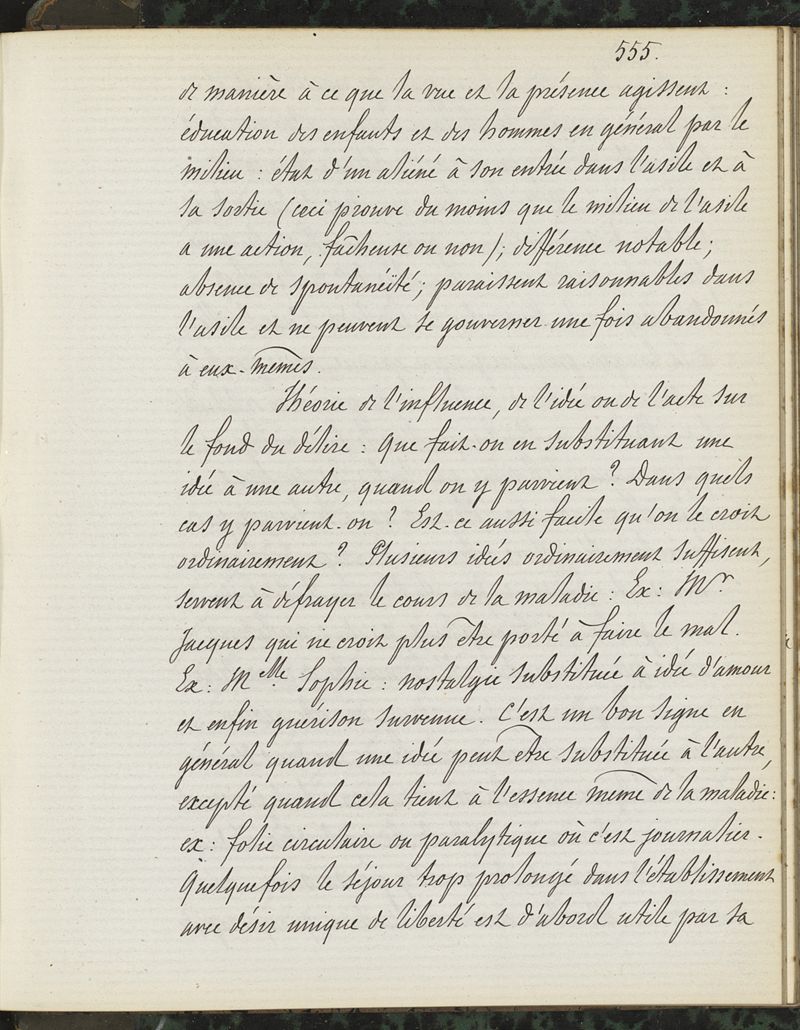 555.
de manière à ce que la vue et la présence agissent :
éducation des enfants et des hommes en général par le
milieu : état d'un aliéné à son entrée dans l'asile et à
sa sortie (ceci prouve du moins que le milieu de l'asile
a une action, fâcheuse ou non); différence notable ;
absence de spontanéïté ; paraissent raisonnables dans
l'asile et ne peuvent se gouverner une fois abandonnés
à eux-mêmes.
Théorie de l'influence, de l'idée ou de l'acte sur
le fond du délire : Que fait-on en substituant une
idée à une autre, quand on y parvient ? Dans quels
cas y parvient-on ? Est-ce aussi facile qu'on le croit
ordinairement ? Plusieurs idées ordinairement suffisent,
servent à défrayer le cours de la maladie : Ex : Mr
Jacques qui ne croit plus être porté à faire le mal.
Ex : Melle Sophie : nostalgie substituée à idée d'amour
et enfin guérison survenue. C'est un bon signe en
général quand une idée peut être substituée à l'autre,
excepté quand cela tient à l'essence même de la maladie :
ex : folie circulaire ou paralytique où c'est journalier.
Quelquefois le séjour trop prolongé dans l'établissement
avec désir unique de liberté est d'abord utile par sa